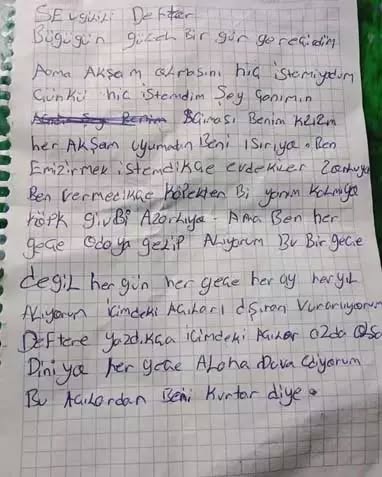 SEvgilili Defter
Bügügün güzel Bir gün geregidim
Ama AKşam olmasını hiç istemiyodum
Çünkü hiç istemdim Şey Canımın
Benim KIZIm
her AKŞam uyumadın Beni ISIrıya. Ben
Emizirmek istemdikçe evdekiler Zorluya
Ben vermedikçe Köpekten Bi yanım Kalmıya
köpk gibi Azarlıya. Ama Ben her
gece Odaya gelip Alıyorum Bu Bir gece
değil her gün her gece her ay her yıl
Alıyorum içimdeki Acıları dışran Vurarlıyorum
DEFtere yazdıkça içimdeki Acılar azda Olsa
Diniya her gece Alaha Duva Ediyorum
Bu Acılardan Beni Kurtar diye.